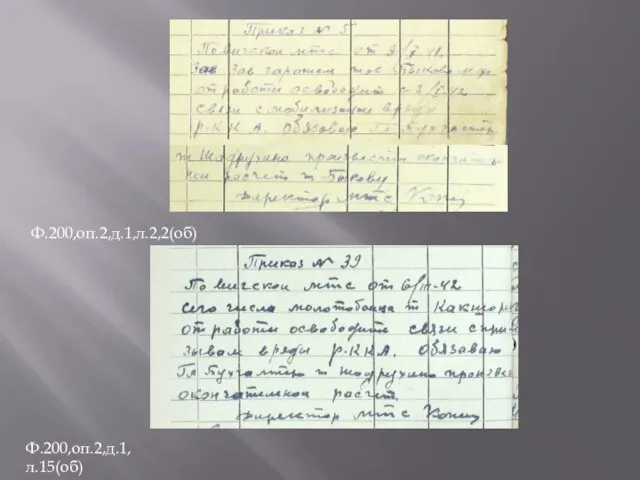 Приказ № 5
По вигской мтс от 2/I-42
Зав гаражем тов Быкова
от работы освободит с 2/I-42
связи с мобилизации в ряды
Р.К.К А. обязоваю Гл Бухгалтер
т Шадрухино произвести окончатель
расчет т Быкову
Директор мтс
Ф.200,оп.2,д.1,л.2,2(об)
Приказ № 39
По вигской мтс от 6/III-42
сего числа молотобоица т
от работы освободить связи с при
зывом в ряды Р.К.К А. обязоваю
Гл Бухгалтер т Шадрухино произвес
окончательной расчет.
Директор мтс
Ф.200,оп.2,д.1,
л.15(об)